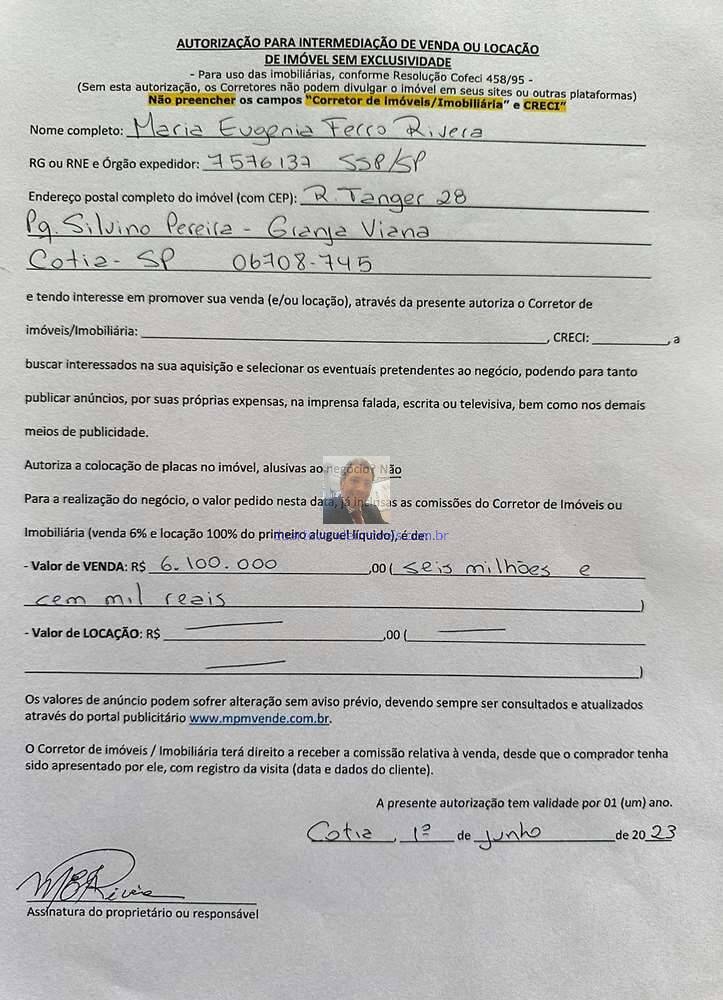 AUTORIZAÇÃO PARA INTERMEDIAÇÃO DE VENDA OU LOCAÇÃO
DE IMÓVEL SEM EXCLUSIVIDADE
- Para uso das imobiliárias, conforme Resolução Cofeci 458/95 -
(Sem esta autorização, os Corretores não podem divulgar o imóvel em seus sites ou outras plataformas)
Não preencher os campos "Corretor de imóveis/Imobiliária" e CRECI"
Nome completo: Maria Eugenia Ferro Rivera
RG ou RNE e Órgão expedidor: 7576137 SSP/SP
Endereço postal completo do imóvel (com CEP): R. Tanger 28
Pq. Silvino Pereira - Granja Viana
Cotia - SP 06708-745
e tendo interesse em promover sua venda (e/ou locação), através da presente autoriza o Corretor de
imóveis/Imobiliária: , CRECI: , a
buscar interessados na sua aquisição e selecionar os eventuais pretendentes ao negócio, podendo para tanto
publicar anúncios, por suas próprias expensas, na imprensa falada, escrita ou televisiva, bem como nos demais
meios de publicidade.
Autoriza a colocação de placas no imóvel, alusivas ao negócio? Não
Para a realização do negócio, o valor pedido nesta data, já inclusas as comissões do Corretor de Imóveis ou
Imobiliária (venda 6% e locação 100% do primeiro aluguel líquido), é de:
- Valor de VENDA: R$ 6.100.000 ,00 ( seis milhões e
cem mil reais )
- Valor de LOCAÇÃO: R$ ,00 (
)
Os valores de anúncio podem sofrer alteração sem aviso prévio, devendo sempre ser consultados e atualizados
através do portal publicitário www.mpmvende.com.br.
O Corretor de imóveis / Imobiliária terá direito a receber a comissão relativa à venda, desde que o comprador tenha
sido apresentado por ele, com registro da visita (data e dados do cliente).
A presente autorização tem validade por 01 (um) ano.
Cotia, 1º de junho de 2023
Assinatura do proprietário ou responsável